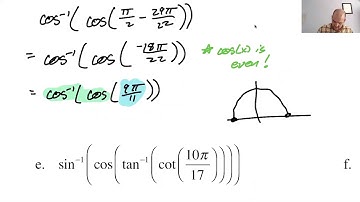 cos⁻¹(cos(π/2 − 29π/22))
= cos⁻¹(cos(−18π/22)) * cos(x) is even!
= cos⁻¹(cos(9π/11))
e. sin⁻¹(cos(tan⁻¹(cot(10π/17)))) f.